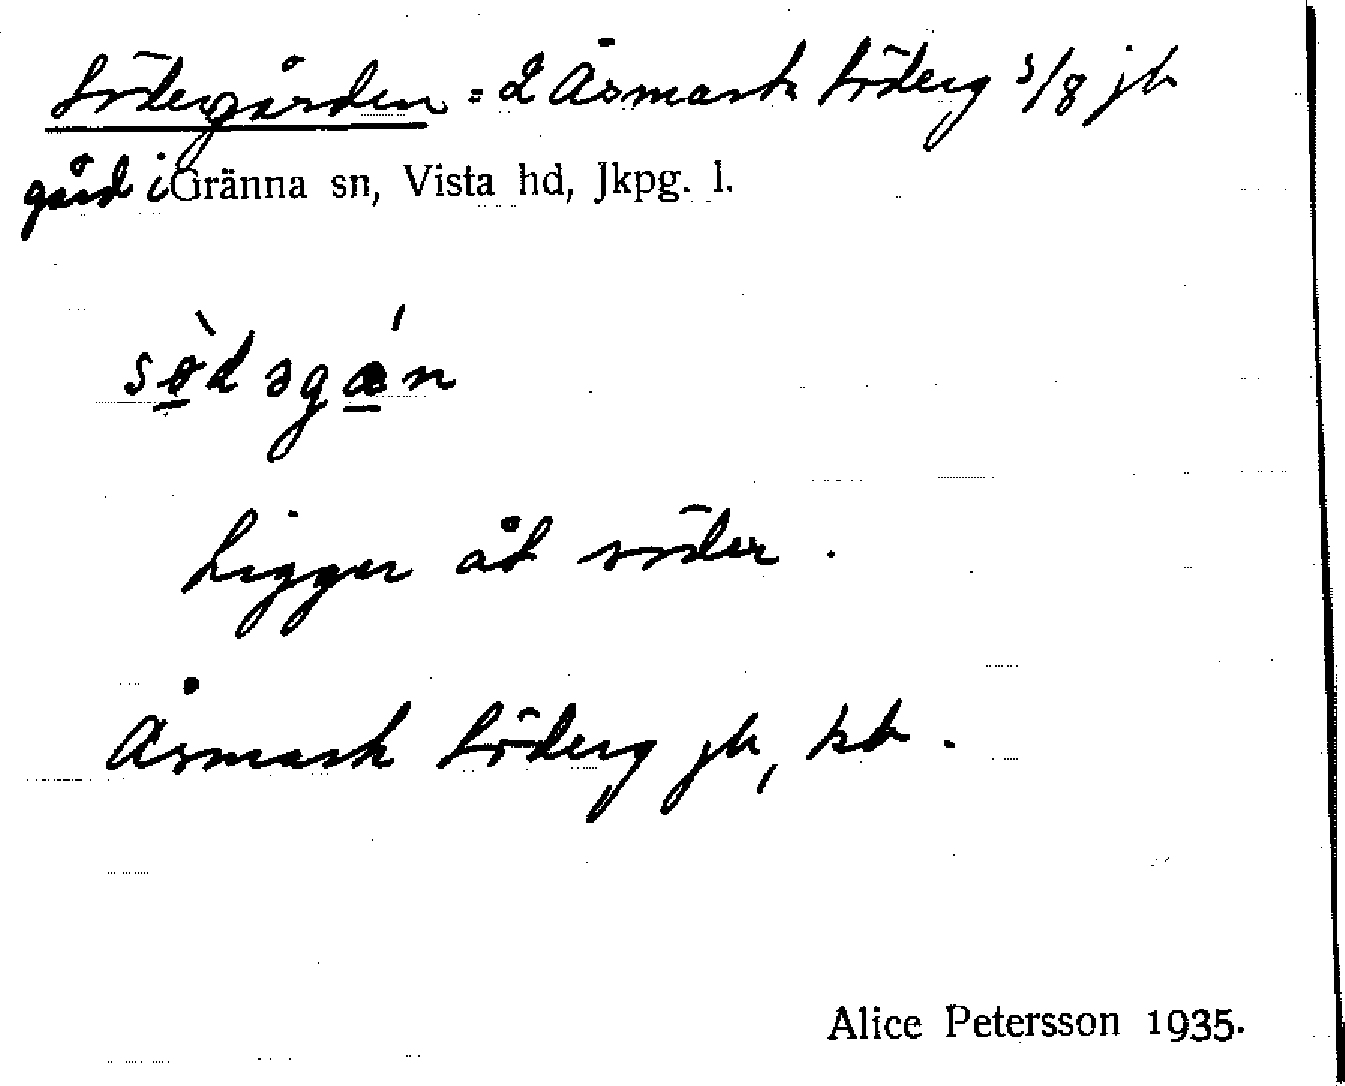 Södergården = 2 Åsmark Söderg 3/8 jb
gård i Gränna sn, Vista hd, Jkpg. l.
sø̀dəgǽn
Ligger åt söder.
Åsmark Söderg jb, kb.
Alice Petersson 1935.